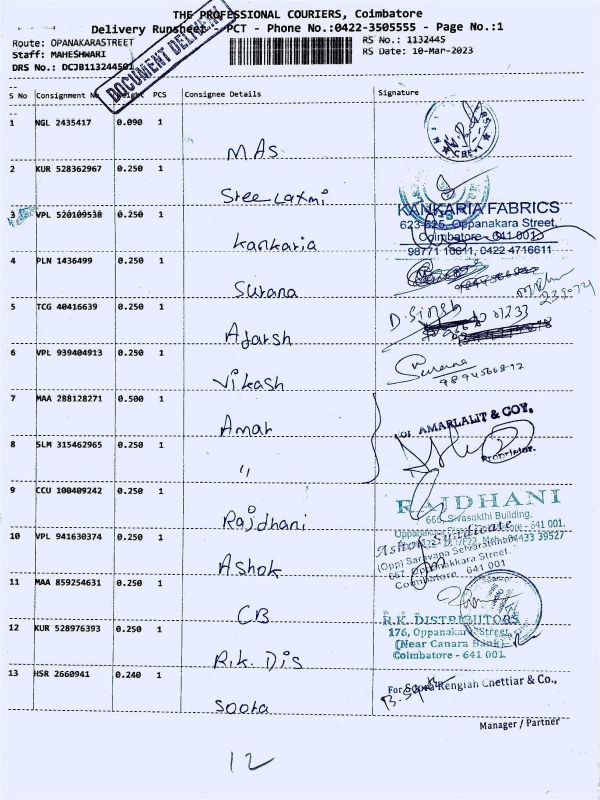 THE PROFESSIONAL COURIERS, Coimbatore
Delivery Runsheet - PCT - Phone No.:0422-3505555 - Page No.:1
Route: OPANAKARASTREET
RS No.: 1132445
Staff: MAHESHWARI
RS Date: 10-Mar-2023
DRS No.: DCJB113244501
DOCUMENT DELIVERY
S No Consignment No PCS Consignee Details Signature
1 NGL 2435417 0.090 1
M.As
2 KUR 528362967 0.250 1
Sree Laxmi
3 VPL 520109538 0.250 1
KANKARIA FABRICS
623-625, Oppanakara Street,
Coimbatore - 641 001
Kankaria
98771 10011, 0422 4716611
4 PLN 1436499 0.250 1
Surana
5 TCG 40416639 0.250 1
D. Singh
Adarsh
6 VPL 939404913 0.250 1
Vikash
7 MAA 288128271 0.500 1
For AMARLALIT & COY.
Amar
Proprietor.
8 SLM 315462965 0.250 1
"
9 CCU 100409242 0.250 1
RAJDHANI
668, Sivasakthi Building,
Rajdhani
10 VPL 941630374 0.250 1
Ashok Syndicate
(Opp) Saravana Selvarathinam
667, Oppanakkara Street,
Coimbatore 641 001
Ashok
11 MAA 859254631 0.250 1
CB
R.K. DISTRIBUTORS
12 KUR 528976393 0.250 1
176, Oppanakara Street,
(Near Canara Bank)
Coimbatore - 641 001.
R.k. Dis
13 HSR 2660941 0.240 1
For Soora Rengiah Chettiar & Co.,
Soora
Manager / Partner
12